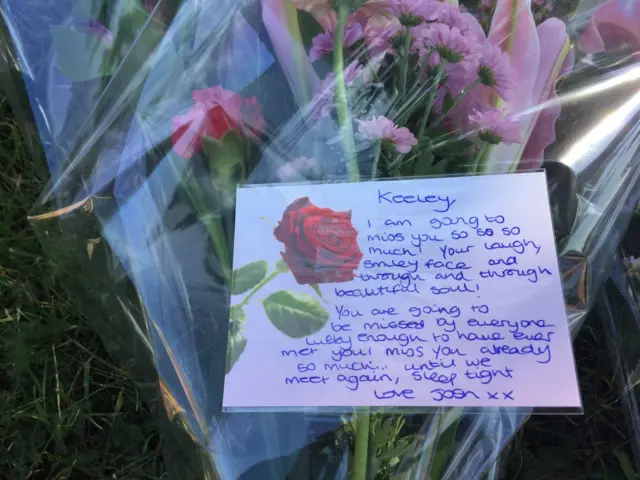 Keeley
I am going to
miss you so so so
much! Your laugh,
smiley face and
through and through
beautiful soul!
You are going to
be missed by everyone
lucky enough to have ever
met you! miss you already
so much... until we
meet again, sleep tight
Love Josh xx